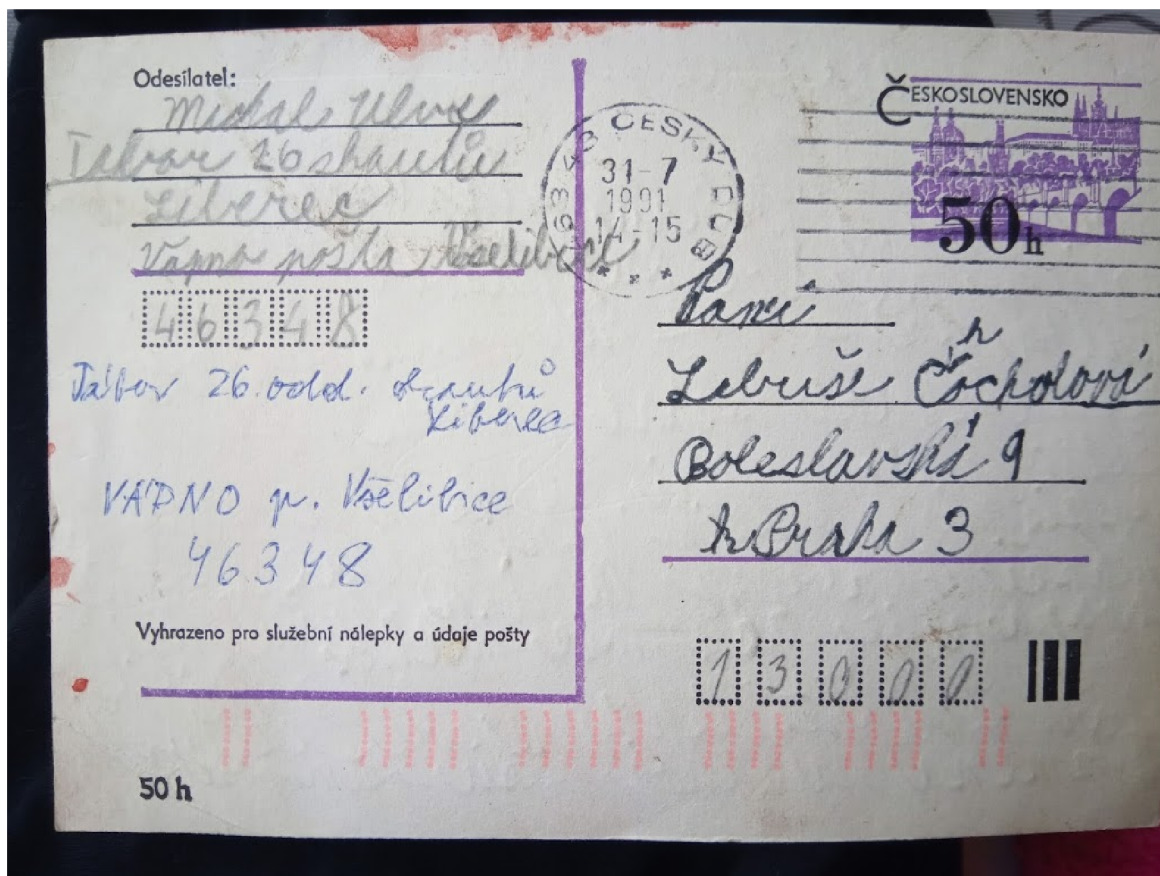 Odesílatel:
Michal
Tábor 26 skautů
Liberec
Vápno pošta Všelibice
46348
Tábor 26. odd. skautů
Liberec
VÁPNO p. Všelibice
46348
Vyhrazeno pro služební nálepky a údaje pošty
50 h
463 43 ČESKÝ DUB
31-7
1991
14-15
ČESKOSLOVENSKO
50 h
Paní
Libuše
Boleslavská 9
Praha 3
13000